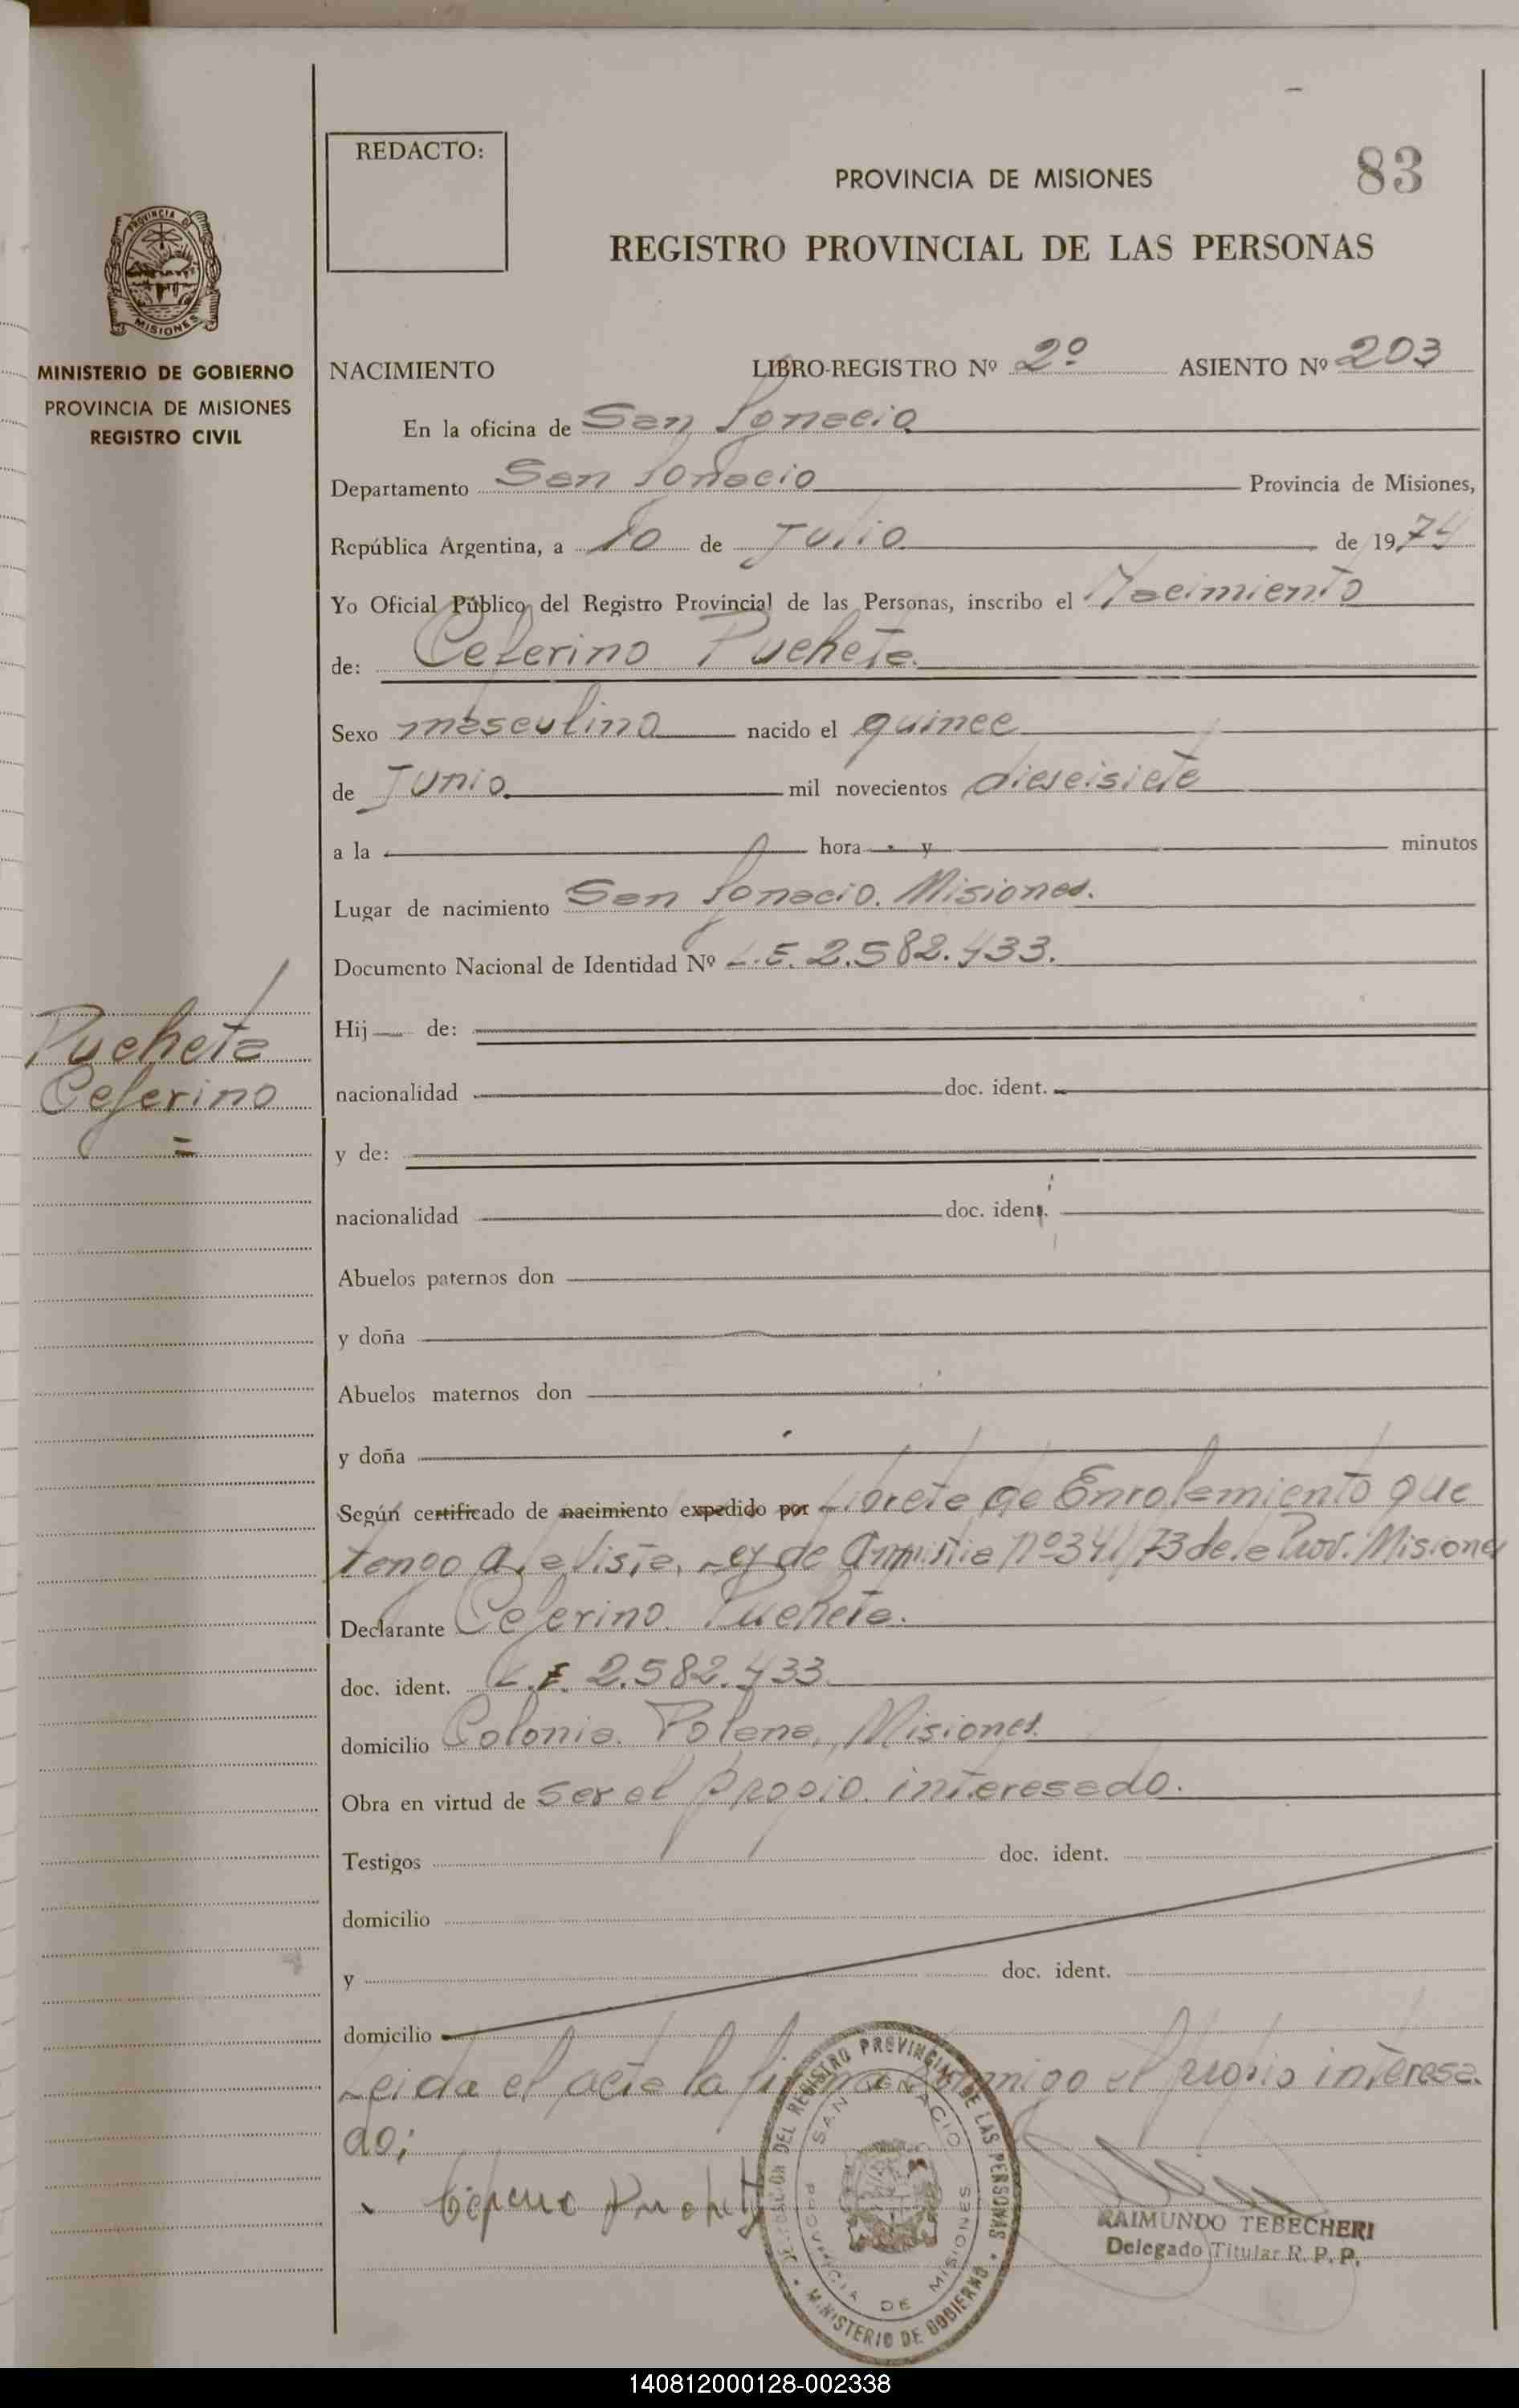 REDACTO:
PROVINCIA DE MISIONES
83
REGISTRO PROVINCIAL DE LAS PERSONAS
PROVINCIA DE
MISIONES
MINISTERIO DE GOBIERNO
PROVINCIA DE MISIONES
REGISTRO CIVIL
NACIMIENTO LIBRO-REGISTRO Nº 2º ASIENTO Nº 203
En la oficina de San Ignacio
Departamento San Ignacio Provincia de Misiones,
República Argentina, a 10 de Julio de 1974
Yo Oficial Público del Registro Provincial de las Personas, inscribo el Nacimiento
de: Ceferino Pucheta.
Sexo masculino nacido el quince
de Junio mil novecientos dieseisiete
a la hora y minutos
Lugar de nacimiento San Ignacio. Misiones.
Documento Nacional de Identidad Nº L.E. 2.582.433.
Pucheta
Ceferino
=
Hij de:
nacionalidad doc. ident.
y de:
nacionalidad doc. ident.
Abuelos paternos don
y doña
Abuelos maternos don
y doña
Según certificado de nacimiento expedido por Libreta de Enrolamiento que
tengo a la vista, Ley de Amnistia nº 341/73 de la Prov. Misiones
Declarante Ceferino Pucheta.
doc. ident. L.E. 2.582.433.
domicilio Colonia Polana, Misiones.
Obra en virtud de ser el propio interesado.
Testigos doc. ident.
domicilio
y doc. ident.
domicilio
Leida el acta la firma conmigo el propio interesa-
do;
DELEGACION DEL REGISTRO PROVINCIAL DE LAS PERSONAS
SAN IGNACIO
PROVINCIA DE MISIONES
MINISTERIO DE GOBIERNO
RAIMUNDO TEBECHERI
Delegado Titular R. P. P.
140812000128-002338